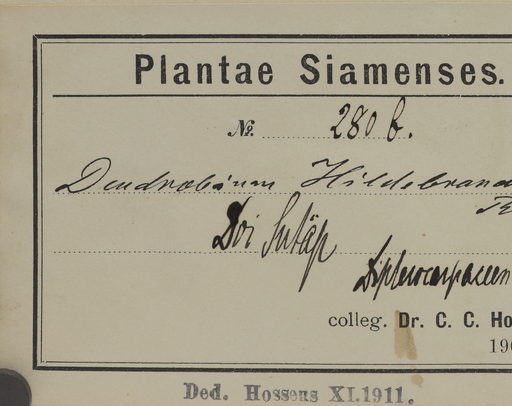 Plantae Siamenses.
№ 280 b.
Dendrobium Hildebrand
R
Doi Sutäp
Dipterocarpaceen
colleg. Dr. C. C. Ho
190
Ded. Hosseus XI.1911.